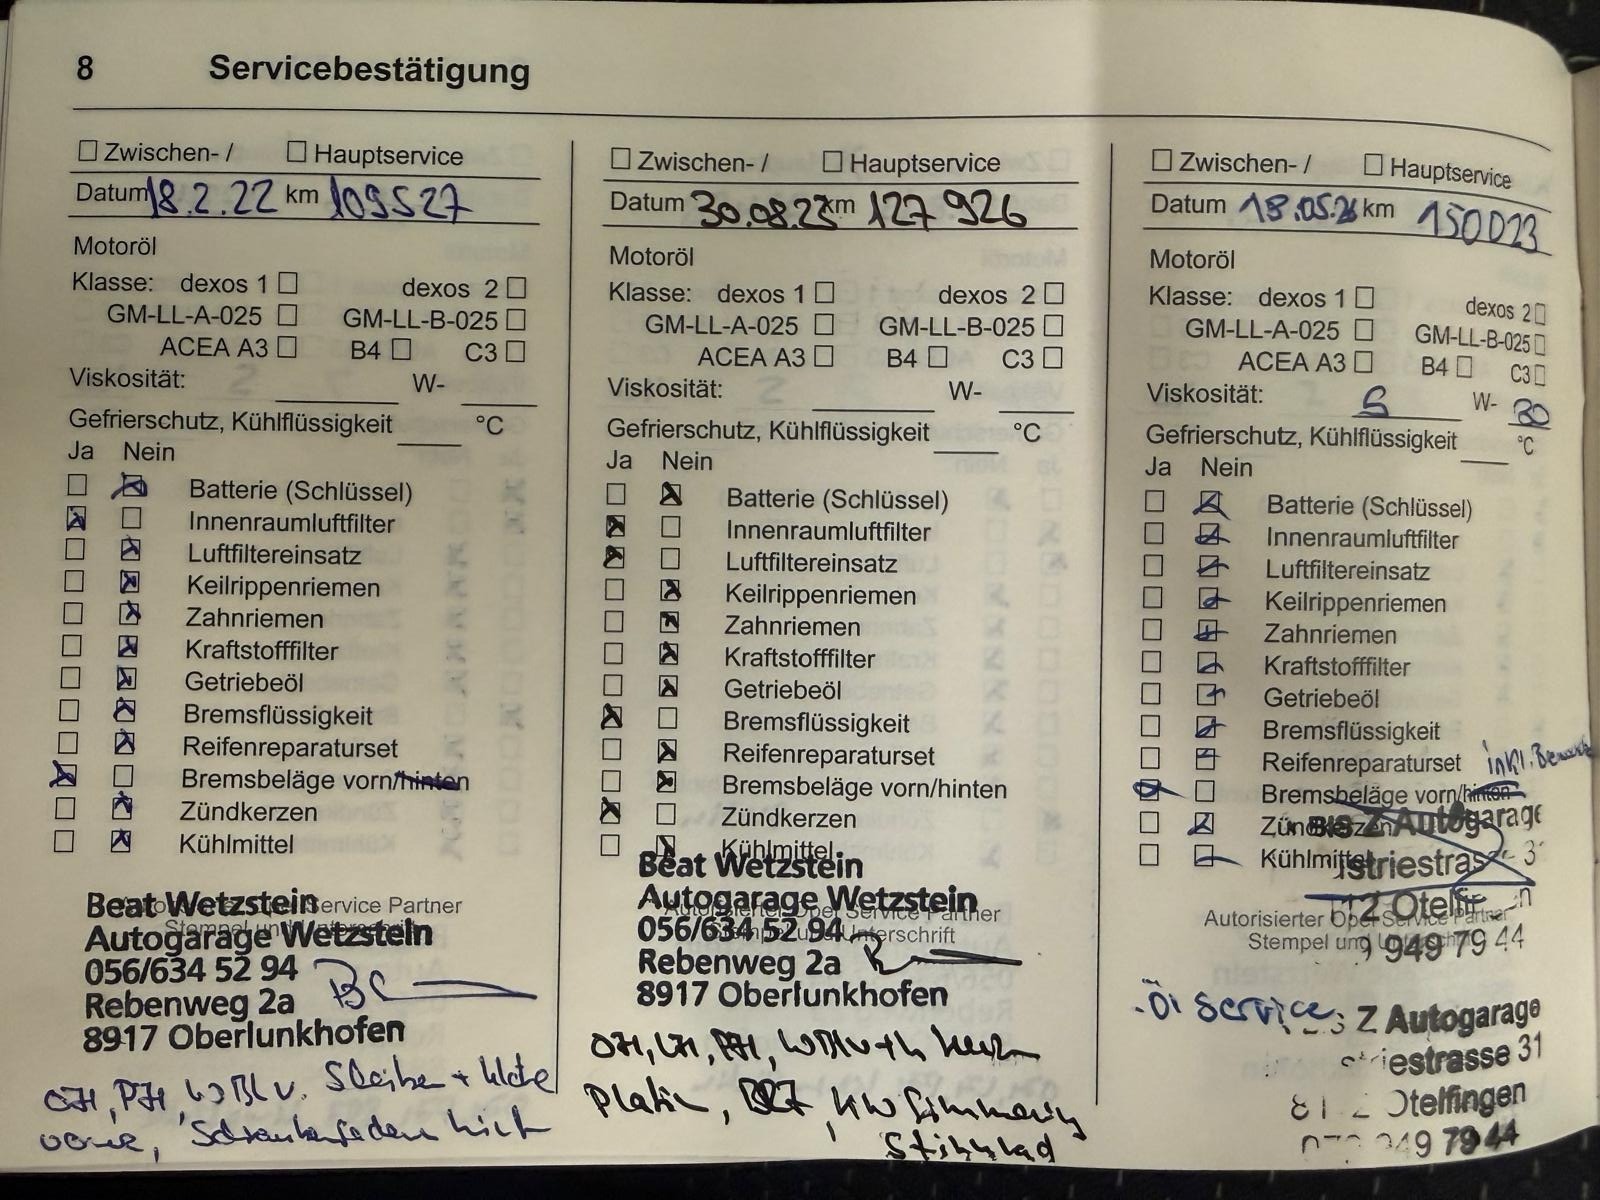 8 Servicebestätigung
Zwischen- / Hauptservice
Datum 18.2.22 km 109527
Motoröl
Klasse: dexos 1 dexos 2
GM-LL-A-025 GM-LL-B-025
ACEA A3 B4 C3
Viskosität: W-
Gefrierschutz, Kühlflüssigkeit °C
Ja Nein
Batterie (Schlüssel)
Innenraumluftfilter
Luftfiltereinsatz
Keilrippenriemen
Zahnriemen
Kraftstofffilter
Getriebeöl
Bremsflüssigkeit
Reifenreparaturset
Bremsbeläge vorn/hinten
Zündkerzen
Kühlmittel
Service Partner
Beat Wetzstein
Autogarage Wetzstein
056/634 52 94
Rebenweg 2a
8917 Oberlunkhofen
Zwischen- / Hauptservice
Datum 30.08.23 km 127 926
Motoröl
Klasse: dexos 1 dexos 2
GM-LL-A-025 GM-LL-B-025
ACEA A3 B4 C3
Viskosität: W-
Gefrierschutz, Kühlflüssigkeit °C
Ja Nein
Batterie (Schlüssel)
Innenraumluftfilter
Luftfiltereinsatz
Keilrippenriemen
Zahnriemen
Kraftstofffilter
Getriebeöl
Bremsflüssigkeit
Reifenreparaturset
Bremsbeläge vorn/hinten
Zündkerzen
Kühlmittel
Autorisierter Opel Service Partner
Stempel und Unterschrift
Beat Wetzstein
Autogarage Wetzstein
056/634 52 94
Rebenweg 2a
8917 Oberlunkhofen
Zwischen- / Hauptservice
Datum 18.05. km 150023
Motoröl
Klasse: dexos 1 dexos 2
GM-LL-A-025 GM-LL-B-025
ACEA A3 B4 C3
Viskosität: 5 W- 30
Gefrierschutz, Kühlflüssigkeit °C
Ja Nein
Batterie (Schlüssel)
Innenraumluftfilter
Luftfiltereinsatz
Keilrippenriemen
Zahnriemen
Kraftstofffilter
Getriebeöl
Bremsflüssigkeit
Reifenreparaturset inkl.
Bremsbeläge vorn/hinten
Zündkerzen
Kühlmittel
Z Autogarage
Autorisierter Opel Service Partner
Stempel und Unterschrift
949 79 44
Öl Service
Z Autogarage
striestrasse 31
Otelfingen
949 79 44